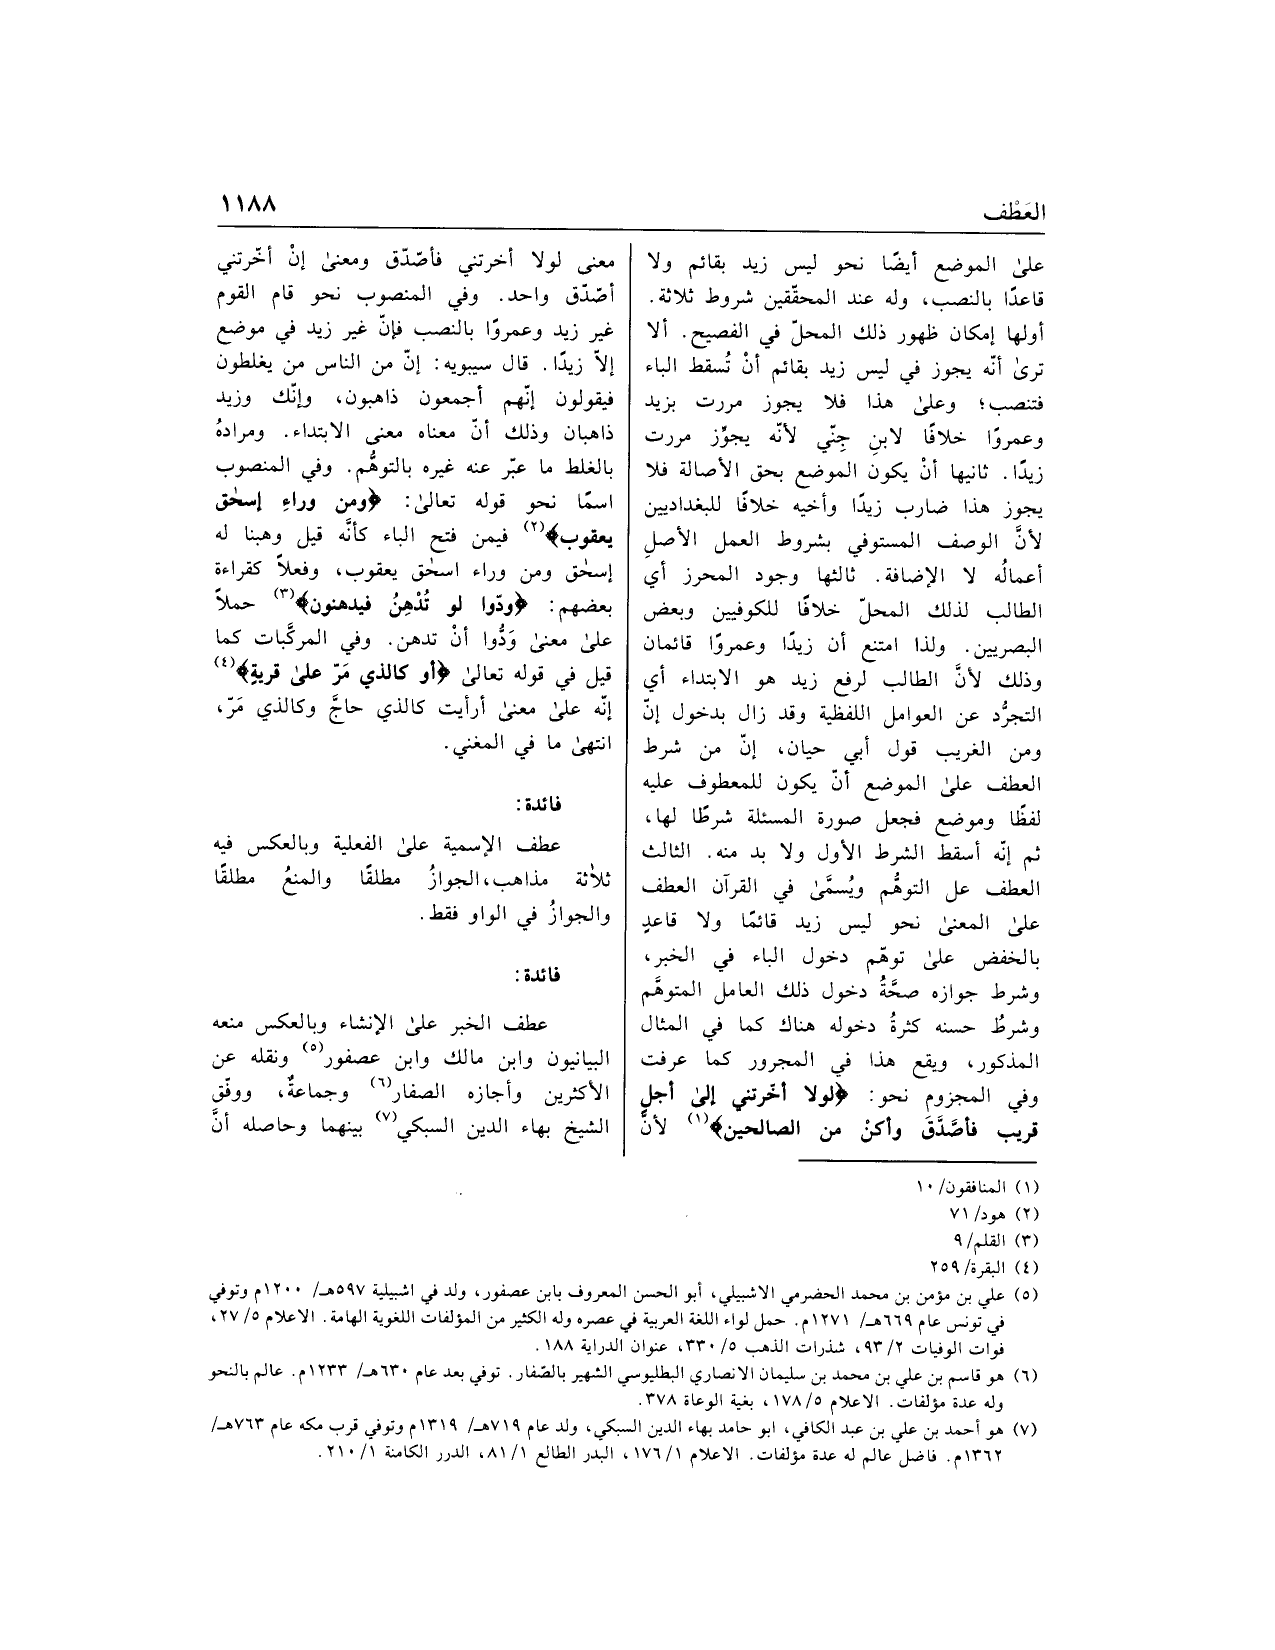 العَطْف
١١٨٨
علىٰ الموضع أيضًا نحو ليس زيد بقائم ولا
قاعدًا بالنصب، وله عند المحقّقين شروط ثلاثة.
أولها إمكان ظهور ذلك المحلّ في الفصيح. ألا
ترىٰ أنّه يجوز في ليس زيد بقائم أنْ تُسقط الباء
فتنصب؛ وعلىٰ هذا فلا يجوز مررت بزيد
وعمروًا خلافًا لابنِ جِنّي لأنّه يجوِّز مررت
زيدًا. ثانيها أنْ يكون الموضع بحق الأصالة فلا
يجوز هذا ضارب زيدًا وأخيه خلافًا للبغداديين
لأنَّ الوصف المستوفي بشروط العمل الأصلِ
أعمالُه لا الإضافة. ثالثها وجود المحرز أي
الطالب لذلك المحلّ خلافًا للكوفيين وبعض
البصريين. ولذا امتنع أن زيدًا وعمروًا قائمان
وذلك لأنَّ الطالب لرفع زيد هو الابتداء أي
التجرُّد عن العوامل اللفظية وقد زال بدخول إنّ
ومن الغريب قول أبي حيان، إنّ من شرط
العطف علىٰ الموضع أنّ يكون للمعطوف عليه
لفظًا وموضع فجعل صورة المسئلة شرطًا لها،
ثم إنّه أسقط الشرط الأول ولا بد منه. الثالث
العطف عل التوهُّم ويُسمَّىٰ في القرآن العطف
علىٰ المعنىٰ نحو ليس زيد قائمًا ولا قاعدٍ
بالخفض علىٰ توهّم دخول الباء في الخبر،
وشرط جوازه صحَّةُ دخول ذلك العامل المتوهَّم
وشرطُ حسنه كثرةُ دخوله هناك كما في المثال
المذكور، ويقع هذا في المجرور كما عرفت
وفي المجزوم نحو: ﴿لولا أخّرتني إلىٰ أجلٍ
قريب فأصَّدَّقَ وأكنْ من الصالحين﴾(١) لأنَّ
معنى لولا أخرتني فأصّدّق ومعنىٰ إنْ أخّرتني
أصّدّق واحد. وفي المنصوب نحو قام القوم
غير زيد وعمروًا بالنصب فإنّ غير زيد في موضع
إلاّ زيدًا. قال سيبويه: إنّ من الناس من يغلطون
فيقولون إنّهم أجمعون ذاهبون، وإنّك وزيد
ذاهبان وذلك أنّ معناه معنى الابتداء. ومرادهُ
بالغلط ما عبّر عنه غيره بالتوهُّم. وفي المنصوب
اسمًا نحو قوله تعالىٰ: ﴿ومن وراءِ إسحٰق
يعقوب﴾(٢) فيمن فتح الباء كأنَّه قيل وهبنا له
إسحٰق ومن وراء اسحٰق يعقوب، وفعلاً كقراءة
بعضهم: ﴿ودّوا لو تُدْهِنُ فيدهنون﴾(٣) حملاً
علىٰ معنىٰ وَدُّوا أنْ تدهن. وفي المركَّبات كما
قيل في قوله تعالىٰ ﴿أو كالذي مَرّ علىٰ قريةٍ﴾(٤)
إنّه علىٰ معنىٰ أرأيت كالذي حاجَّ وكالذي مَرّ،
انتهىٰ ما في المغني.
فائدة:
عطف الإسمية علىٰ الفعلية وبالعكس فيه
ثلاثة مذاهب،الجوازُ مطلقًا والمنعُ مطلقًا
والجوازُ في الواو فقط.
فائدة:
عطف الخبر علىٰ الإنشاء وبالعكس منعه
البيانيون وابن مالك وابن عصفور(٥) ونقله عن
الأكثرين وأجازه الصفار(٦) وجماعةٌ، ووفّق
الشيخ بهاء الدين السبكي(٧) بينهما وحاصله أنَّ
(١) المنافقون/ ١٠
(٢) هود/ ٧١
(٣) القلم/ ٩
(٤) البقرة/ ٢٥٩
(٥) علي بن مؤمن بن محمد الحضرمي الاشبيلي، أبو الحسن المعروف بابن عصفور، ولد في اشبيلية ٥٩٧هـ/ ١٢٠٠م وتوفي
في تونس عام ٦٦٩هـ/ ١٢٧١م. حمل لواء اللغة العربية في عصره وله الكثير من المؤلفات اللغوية الهامة. الاعلام ٥/ ٢٧،
فوات الوفيات ٢/ ٩٣، شذرات الذهب ٥/ ٣٣٠، عنوان الدراية ١٨٨.
(٦) هو قاسم بن علي بن محمد بن سليمان الانصاري البطليوسي الشهير بالصّفار. توفي بعد عام ٦٣٠هـ/ ١٢٣٣م. عالم بالنحو
وله عدة مؤلفات. الاعلام ٥/ ١٧٨، بغية الوعاة ٣٧٨.
(٧) هو أحمد بن علي بن عبد الكافي، ابو حامد بهاء الدين السبكي، ولد عام ٧١٩هـ/ ١٣١٩م وتوفي قرب مكه عام ٧٦٣هـ/
١٣٦٢م. فاضل عالم له عدة مؤلفات. الاعلام ١/ ١٧٦، البدر الطالع ١/ ٨١، الدرر الكامنة ١/ ٢١٠.